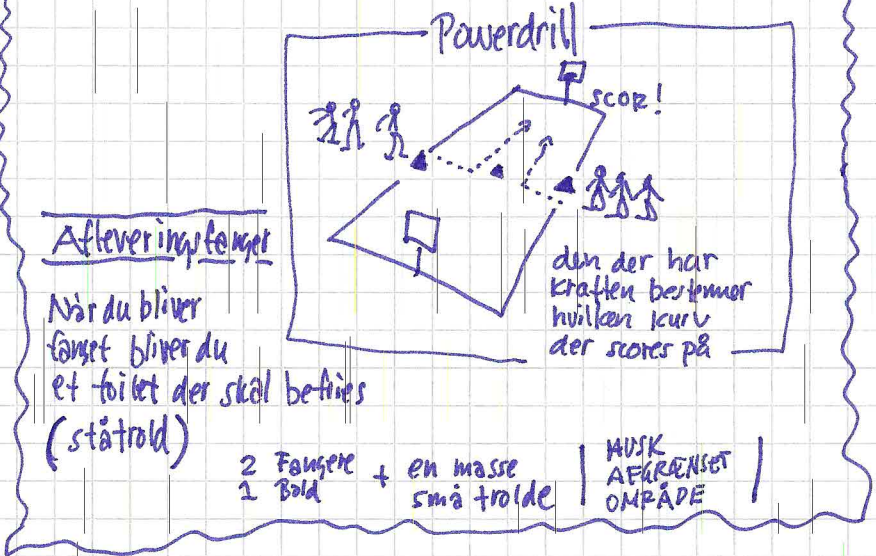 Powerdrill
SCOR!
den der har
kraften bestemmer
hvilken kurv
der scores på
Afleveringsfanger
Når du bliver
fanget bliver du
et toilet der skal befries
(ståtrold)
2 Fangere
1 Bold
+ en masse
små trolde
HUSK
AFGRÆNSET
OMRÅDE